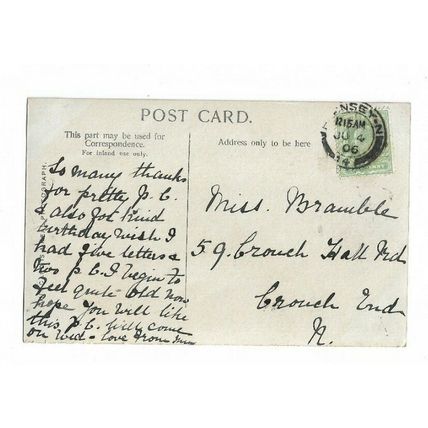 POST CARD.
This part may be used for
Correspondence.
For inland use only.
Address only to be here
HORNSEY. N
12.15AM
JU 4
06
So many thanks
for pretty P.C.
& also for kind
birthday wish I
had five letters &
two P.C. I begin to
feel quite old now
hope you will like
this P.C. will come
on Wed - love from
Miss. Bramble
59 Crouch Hall Rd
Crouch End
N.